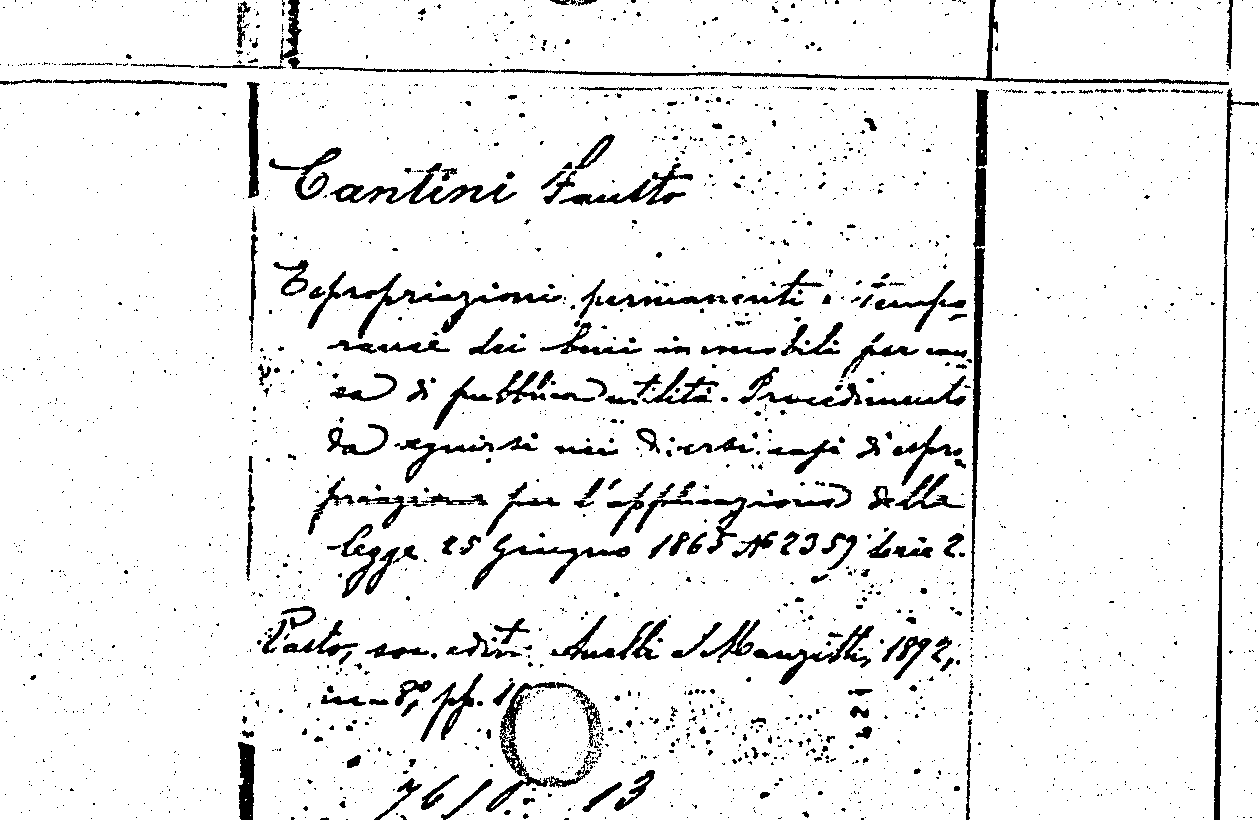 Cantini Fausto
Espropriazioni permanenti e tempo-
ranee dei beni immobili per cau-
sa di pubblica utilità. Procedimento
da seguirsi nei diversi casi di espro-
priazione per l'applicazione della
legge 25 Giugno 1865 N° 2359 Serie 2.
soc. edit. 1892,
in-8°, pp.
7610 13